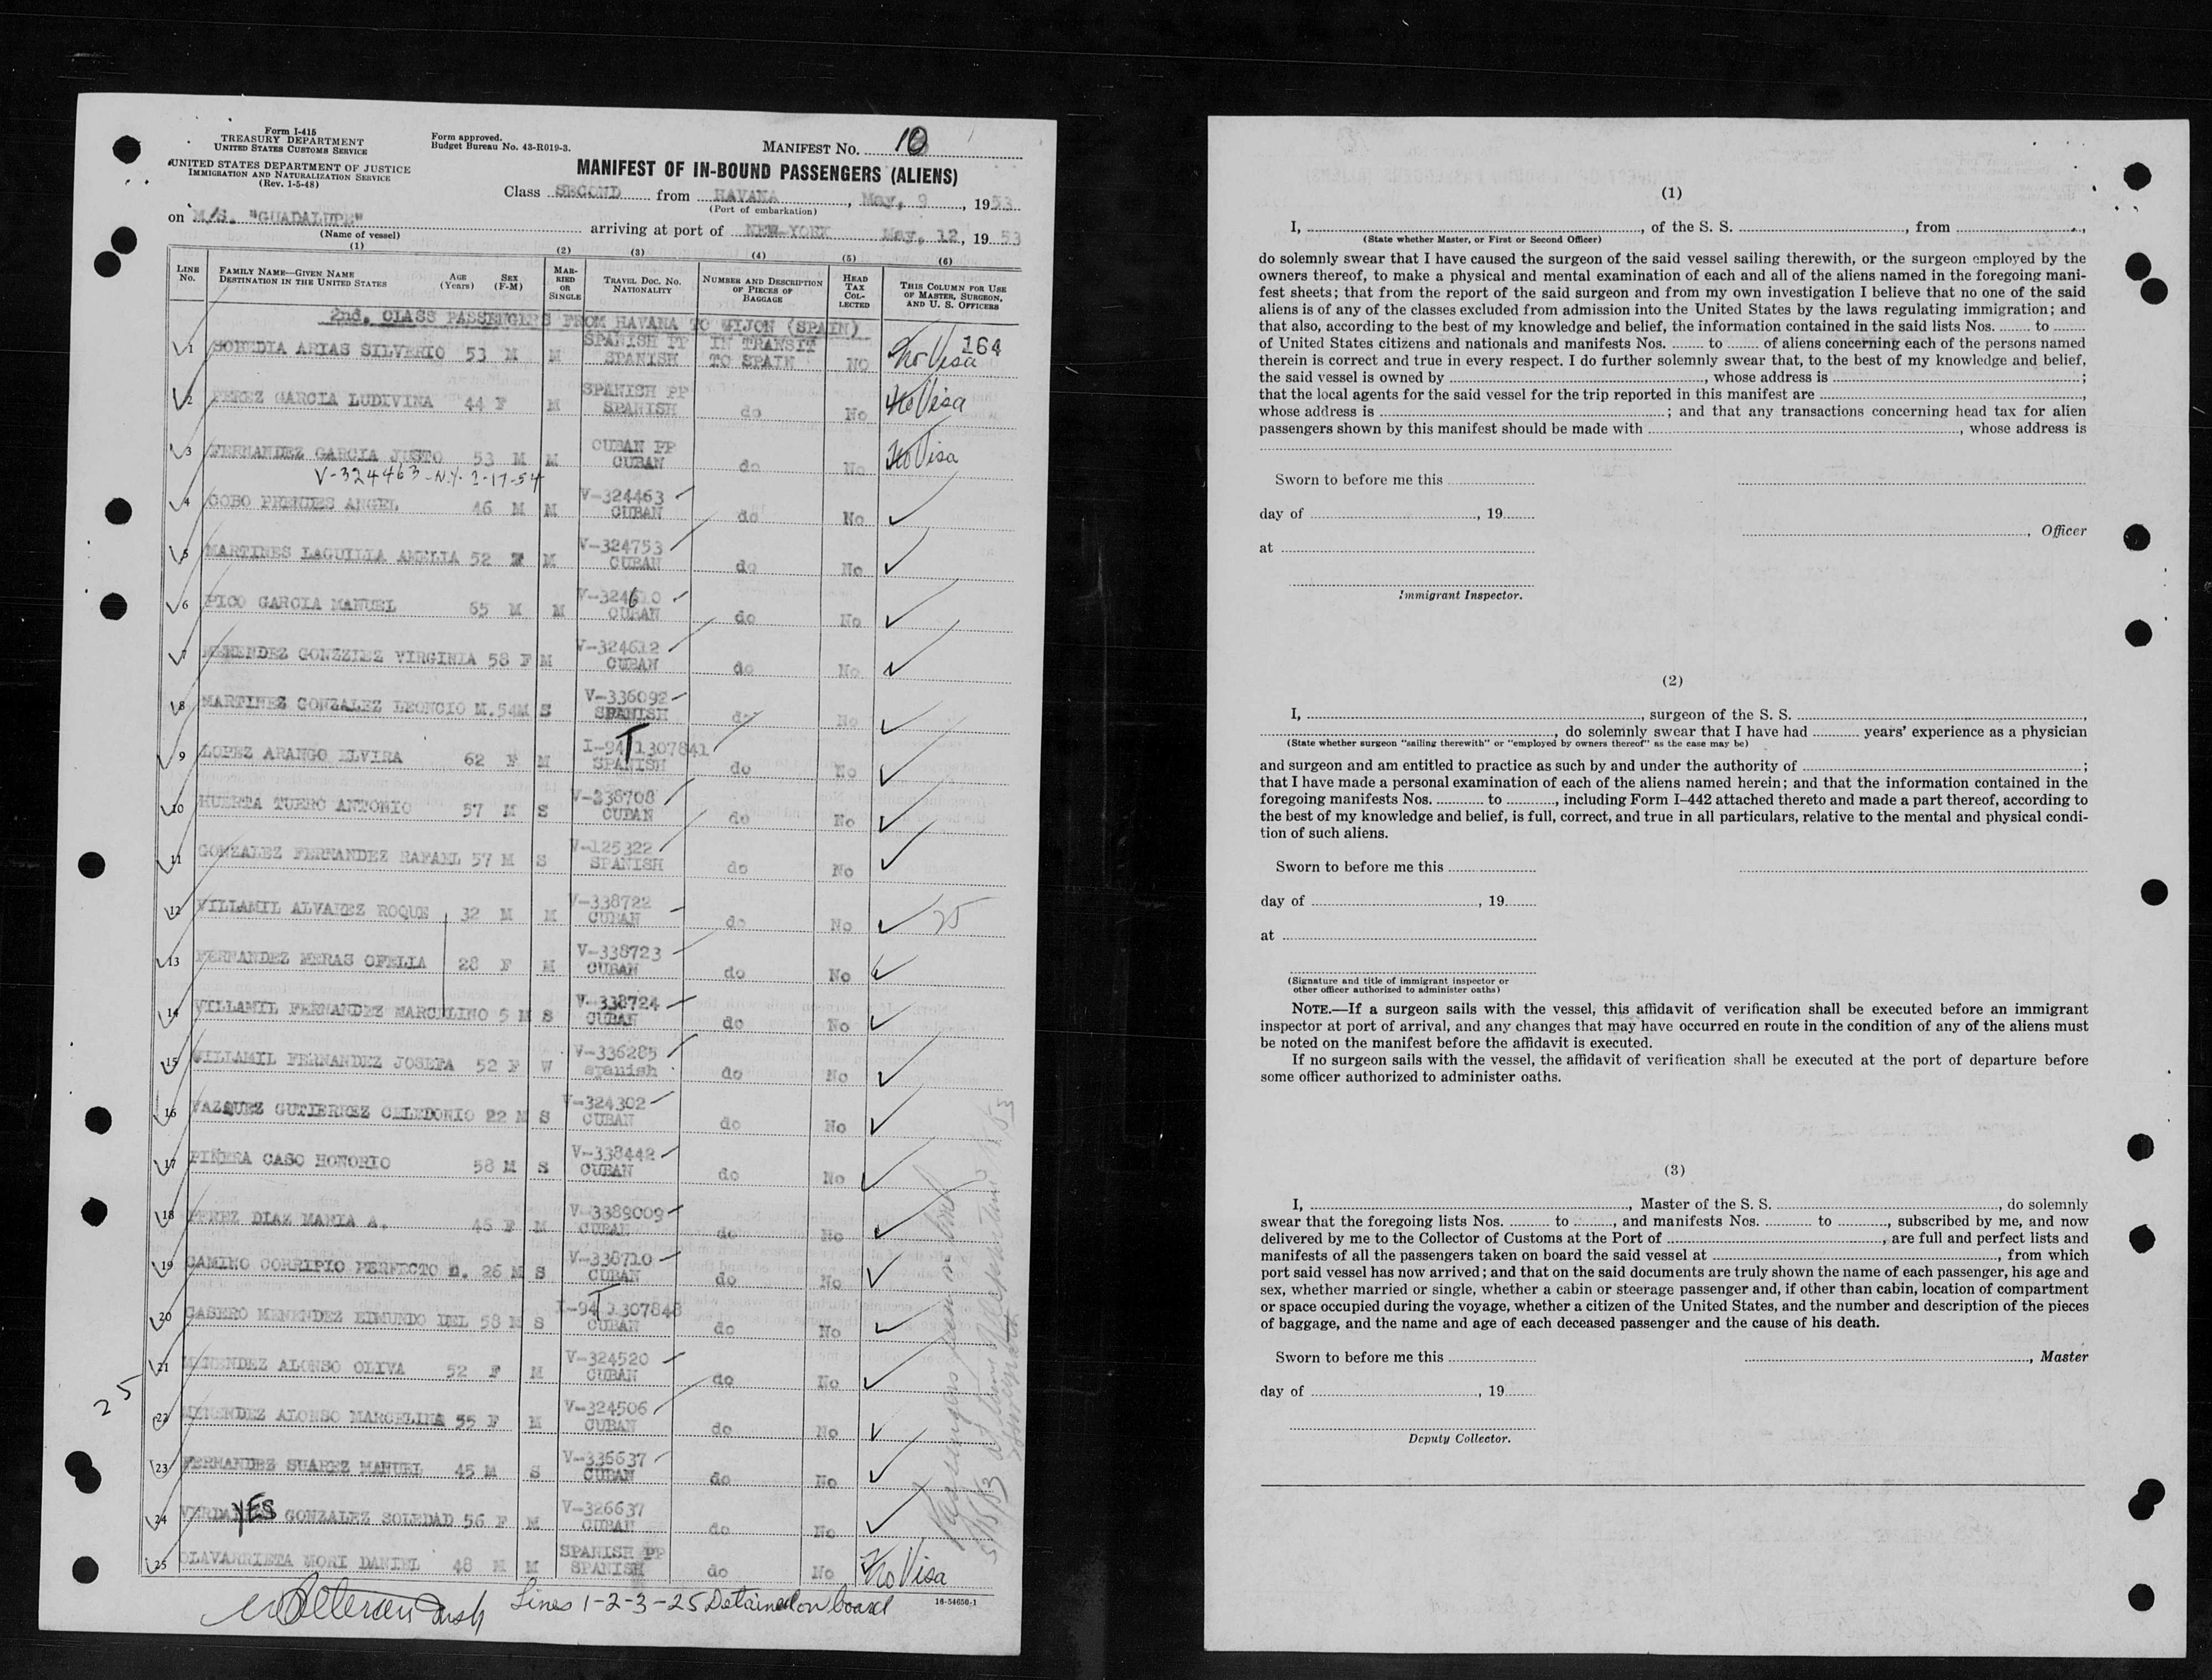 Form I-415
TREASURY DEPARTMENT
UNITED STATES CUSTOMS SERVICE
UNITED STATES DEPARTMENT OF JUSTICE
IMMIGRATION AND NATURALIZATION SERVICE
(Rev. 1-5-48)
Form approved.
Budget Bureau No. 43-R019-3.
MANIFEST NO. 10
MANIFEST OF IN-BOUND PASSENGERS (ALIENS)
Class SECOND from HAVANA, May, 9, 1953
(Port of embarkation)
on M/S. "GUADALUPE" arriving at port of NEW-YORK May, 12, 1953
(Name of vessel)
(1) (2) (3) (4) (5) (6)
LINE No. FAMILY NAME—GIVEN NAME DESTINATION IN THE UNITED STATES AGE (Years) SEX (F-M) MARRIED OR SINGLE TRAVEL DOC. NO. NATIONALITY NUMBER AND DESCRIPTION OF PIECES OF BAGGAGE HEAD TAX COLLECTED THIS COLUMN FOR USE OF MASTER, SURGEON, AND U. S. OFFICERS
2nd. CLASS PASSENGERS FROM HAVANA TO GIJON (SPAIN)
164
1 SOBEDIA ARIAS SILVERIO 53 M M SPANISH PP SPANISH IN TRANSIT TO SPAIN NO No Visa
2 PEREZ GARCIA LUDIVINA 44 F M SPANISH PP SPANISH do No No Visa
3 FERNANDEZ GARCIA JUSTO 53 M M CUBAN PP CUBAN do No No Visa
V-324463-N.Y. 2-17-54
4 COBO PRENDES ANGEL 46 M M V-324463 CUBAN do No
5 MARTINES LAGUILLA AMELIA 52 F M V-324753 CUBAN do No
6 PICO GARCIA MANUEL 65 M M V-324610 CUBAN do No
7 MENENDEZ GONZZLEZ VIRGINIA 58 F M V-324612 CUBAN do No
8 MARTINEZ GONZALEZ LEONCIO M. 54 M S V-336092 SPANISH do No
9 LOPEZ ARANGO ELVIRA 62 F M I-94 T 1307841 SPANISH do No
10 HUERTA TUERO ANTONIO 57 M S V-338708 CUBAN do No
11 GONZALEZ FERNANDEZ RAFAEL 57 M S V-125322 SPANISH do No
12 VILLAMIL ALVAREZ ROQUE 32 M M V-338722 CUBAN do No 25
13 FERNANDEZ MERAS OFELIA 28 F M V-338723 CUBAN do No
14 VILLAMIL FERNANDEZ MARCELINO 5 M S V-338724 CUBAN do No
15 VILLAMIL FERNANDEZ JOSEFA 52 F W V-336285 spanish do No
16 VAZQUEZ GUTIERREZ CELEDONIO 22 M S V-324302 CUBAN do No
17 PIÑERA CASO HONORIO 58 M S V-338442 CUBAN do No
18 PEREZ DIAZ MARIA A. 45 F M V-3389009 CUBAN do No
19 CAMINO CORRIPIO PERFECTO D. 26 M S V-338710 CUBAN do No
20 CASERO MENENDEZ EDMUNDO DEL 58 M S I-94 T 1307843 CUBAN do No
21 MENENDEZ ALONSO OLIVA 52 F M V-324520 CUBAN do No
25
22 MENENDEZ ALONSO MARCELINA 55 F M V-324506 CUBAN do No
23 FERNANDEZ SUAREZ MANUEL 45 M S V-336637 CUBAN do No
24 VERDAYES GONZALEZ SOLEDAD 56 F M V-326637 CUBAN do No
25 OLAVARRIETA MORI DANIEL 48 M M SPANISH PP SPANISH do No No Visa
Lines 1-2-3-25 Detained on board
16-54650-1
(1)
I, , of the S. S. , from ,
(State whether Master, or First or Second Officer)
do solemnly swear that I have caused the surgeon of the said vessel sailing therewith, or the surgeon employed by the
owners thereof, to make a physical and mental examination of each and all of the aliens named in the foregoing mani-
fest sheets; that from the report of the said surgeon and from my own investigation I believe that no one of the said
aliens is of any of the classes excluded from admission into the United States by the laws regulating immigration; and
that also, according to the best of my knowledge and belief, the information contained in the said lists Nos. to
of United States citizens and nationals and manifests Nos. to of aliens concerning each of the persons named
therein is correct and true in every respect. I do further solemnly swear that, to the best of my knowledge and belief,
the said vessel is owned by , whose address is ;
that the local agents for the said vessel for the trip reported in this manifest are ,
whose address is ; and that any transactions concerning head tax for alien
passengers shown by this manifest should be made with , whose address is
Sworn to before me this
day of , 19
, Officer
at
Immigrant Inspector.
(2)
I, , surgeon of the S. S. ,
, do solemnly swear that I have had years' experience as a physician
(State whether surgeon "sailing therewith" or "employed by owners thereof" as the case may be)
and surgeon and am entitled to practice as such by and under the authority of ;
that I have made a personal examination of each of the aliens named herein; and that the information contained in the
foregoing manifests Nos. to , including Form I-442 attached thereto and made a part thereof, according to
the best of my knowledge and belief, is full, correct, and true in all particulars, relative to the mental and physical condi-
tion of such aliens.
Sworn to before me this
day of , 19
at
(Signature and title of immigrant inspector or
other officer authorized to administer oaths)
NOTE.—If a surgeon sails with the vessel, this affidavit of verification shall be executed before an immigrant
inspector at port of arrival, and any changes that may have occurred en route in the condition of any of the aliens must
be noted on the manifest before the affidavit is executed.
If no surgeon sails with the vessel, the affidavit of verification shall be executed at the port of departure before
some officer authorized to administer oaths.
(3)
I, , Master of the S. S. , do solemnly
swear that the foregoing lists Nos. to , and manifests Nos. to , subscribed by me, and now
delivered by me to the Collector of Customs at the Port of , are full and perfect lists and
manifests of all the passengers taken on board the said vessel at , from which
port said vessel has now arrived; and that on the said documents are truly shown the name of each passenger, his age and
sex, whether married or single, whether a cabin or steerage passenger and, if other than cabin, location of compartment
or space occupied during the voyage, whether a citizen of the United States, and the number and description of the pieces
of baggage, and the name and age of each deceased passenger and the cause of his death.
Sworn to before me this
, Master
day of , 19
Deputy Collector.